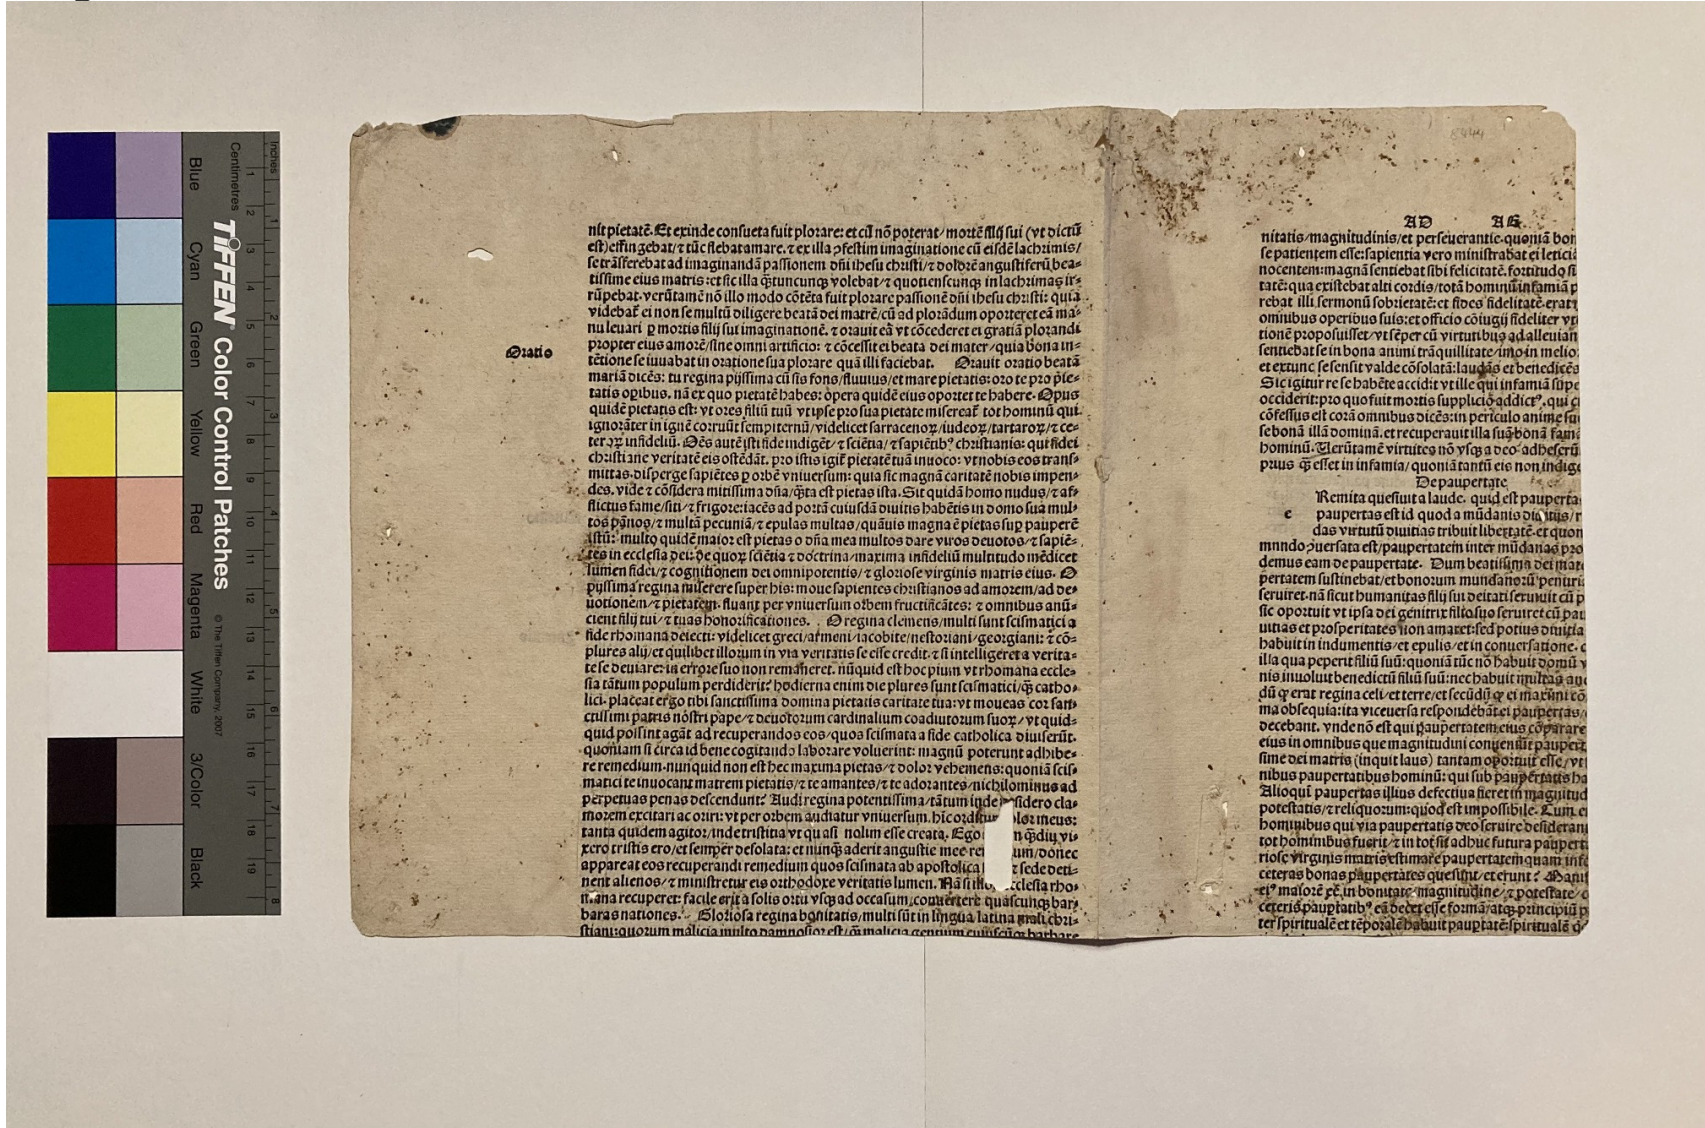 Inches
Centimetres
TIFFEN Color Control Patches
© The Tiffen Company, 2007
Blue
Cyan
Green
Yellow
Red
Magenta
White
3/Color
Black
nit pietatē. Et exinde consueta fuit plorare: et cū nō poterat/mortē filij sui (vt dictū
est) effingebat/⁊ tūc flebat amare. ⁊ ex illa ꝯfestim imaginatione cū eisdē lachrimis/
se trāsferebat ad imaginandā passionem dñi ihesu christi/⁊ dolorē angustiferū bea-
tissime eius matris: et sic illa q̄tuncunqꝫ volebat/⁊ quotienscunqꝫ in lachrimas ir-
rūpebat. verūtamē nō illo modo cōtēta fuit plorare passionē dñi ihesu christi: quia
videbat̄ ei non se multū diligere beatā dei matrē/cū ad plorādum oporteret eā ma-
nu leuari ꝑ mortis filij sui imaginationē. ⁊ orauit eā vt cōcederet ei gratiā plorandi
propter eius amorē/sine omni artificio: ⁊ cōcessit ei beata dei mater/quia bona in-
Oratio
tētione se iuuabat in oratione sua plorare quā illi faciebat. Orauit oratio beatā
mariā dicēs: tu regina pijssima cū sis fons/fluuius/et mare pietatis: oro te pro pie-
tatis opibus. nā ex quo pietatē habes: opera quidē eius oportet te habere. Opus
quidē pietatis est: vt ores filiū tuū vt ipse pro sua pietate misereat̄ tot hominū qui
ignorāter in ignē corruūt sempiternū/videlicet sarracenoꝝ/iudeoꝝ/tartaroꝝ/⁊ ce-
teroꝝ infideliū. Oēs autē isti fide indigēt/⁊ sciētia/⁊ sapiētibꝰ christianis: qui fidei
christiane veritatē eis ostēdāt. pro istis igit̄ pietatē tuā inuoco: vt nobis eos trans-
mittas. disperge sapiētes ꝑ orbē vniuersum: quia sic magnā caritatē nobis impen-
des. vide ⁊ cōsidera mitissima dña/q̄ta est pietas ista. Sit quidā homo nudus/⁊ af-
flictus fame/siti/⁊ frigore: iacēs ad portā cuiusdā diuitis habētis in domo sua mul-
tos pānos/⁊ multā pecuniā/⁊ epulas multas/quāuis magna ē pietas suꝑ pauperē
istū: multo quidē maior est pietas o dña mea multos dare viros deuotos/⁊ sapiē-
tes in ecclesia dei: de quoꝝ sciētia ⁊ doctrina/maxima infideliū multitudo mēdicet
lumen fidei/⁊ cognitionem dei omnipotentis/⁊ gloriose virginis matris eius. O
pijssima regina miserere super his: moue sapientes christianos ad amorem/ad de-
uotionem/⁊ pietatem. fluant per vniuersum orbem fructificātes: ⁊ omnibus anū-
cient filij tui/⁊ tuas honorificationes. O regina clemens/multi sunt scismatici a
fide rhomana deiecti: videlicet greci/armeni/iacobite/nestoriani/georgiani: ⁊ cō-
plures alij/et quilibet illorum in via veritatis se esse credit. ⁊ si intelligeret a verita-
te se deuiare: in errore suo non remaneret. nūquid est hoc pium vt rhomana eccle-
sia tātum populum perdiderit? hodierna enim die plures sunt scismatici/q̄ catho-
lici. placeat ergo tibi sanctissima domina pietatis caritate tua: vt moueas cor san-
ctissimi patris nostri pape/⁊ deuotorum cardinalium coadiutorum suoꝝ/vt quid-
quid possint agāt ad recuperandos eos/quos scismata a fide catholica diuiserūt.
quoniam si circa id bene cogitando laborare voluerint: magnū poterunt adhibe-
re remedium. nunquid non est hec maxima pietas/⁊ dolor vehemens: quoniā scis-
matici te inuocant matrem pietatis/⁊ te amantes/⁊ te adorantes/nichilominus ad
perpetuas penas descendunt? Audi regina potentissima/tātum inde sidero cla-
morem excitari ac oriri: vt per orbem audiatur vniuersum. hic ordītur olor meus:
tanta quidem agitor/inde tristitia vt quasi nolim esse creata. Ego m q̄diu vi-
xero tristis ero/et semper desolata: et nunqꝫ aderit angustie mee um/donec
appareat eos recuperandi remedium quos scismata ab apostolica sede deti-
nent alienos/⁊ ministretur eis orthodoxe veritatis lumen. Nā si ecclesia rho-
mana recuperet: facile erit a solis ortu vsqꝫ ad occasum/conuertere quascunqꝫ bar-
baras nationes. Gloriosa regina bonitatis/multi sūt in lingua latina mali chri-
stiani: quorum malicia multo damnosior est/q̄ malicia gentium cuiuscūqꝫ barbare
8444
AD AG
nitatis/magnitudinis/et perseuerantie. quoniā bon
se patientem esse: sapientia vero ministrabat ei leticia
nocentem: magnā sentiebat sibi felicitatē. fortitudo si
tatē: qua existebat alti cordis/totā hominū infamiā p
rebat illi sermonū sobrietatē: et fides fidelitatē. erat
omnibus operibus suis: et officio cōiugij fideliter vt
tionē proposuisset/vt sēper cū virtutibus ad alleuian
sentiebat se in bona animi trāquillitate/imo in melio
et extunc se sensit valde cōsolatā: laudās et benedicēs
Sic igitur re se habēte accidit vt ille qui infamiā supe
occiderit: pro quo fuit mortis supplicio addictꝰ. qui c
cōfessus est corā omnibus dicēs: in periculo anime su
se bonā illā dominā. et recuperauit illa suā bonā fam
hominū. Uerūtamē virtutes nō vsqꝫ adeo adheserū
prius q̄ esset in infamia/quoniā tantū eis non indige
De paupertate
Remita quesiuit a laude. quid est pauperta
e paupertas est id quod a mūdanis diuitijs/r
das virtutū diuitias tribuit libertatē. et quon
mundo ꝯuersata est/paupertatem inter mūdanas pro
demus eam de paupertate. Dum beatissima dei mat
pertatem sustinebat/et bonorum mundanorū penuri
seruiret. nā sicut humanitas filij sui deitati seruiuit cū p
sic oportuit vt ipsa dei genitrix filio suo seruiret cū pau
uitias et prosperitates non amaret: sed potius diuitia
habuit in indumentis/et epulis/et in conuersatione. q
illa qua peperit filiū suū: quoniā tūc nō habuit domū v
nis inuoluit benedictū filiū suū: nec habuit multas an
dū ꝙ erat regina celi/et terre/et secūdū ꝙ ei maxim cō
ma obsequia: ita viceuersa respondebāt ei paupertas/
decebant. vnde nō est qui paupertatem eius cōparare
eius in omnibus que magnitudini conueniūt paupert
sime dei matris (inquit laus) tantam oportuit esse/vt
nibus paupertatibus hominū: qui sub paupertatis ha
Alioqui paupertas illius defectiua fieret in magnitud
potestatis/⁊ reliquorum: quod est impossibile. Cum e
hominibus qui via paupertatis deo seruire desideran
tot hominibus fuerit/⁊ in tot sit adhuc futura paupert
riose virginis matris estimare paupertatem quam inte
ceteras bonas paupertates quesiuit/et erunt? Mani
eiꝰ maiorē eē in bonitate/magnitudine/⁊ potestate/
ceteris pauꝑtatibꝰ eā decet esse formā/atqꝫ principiū p
ter spiritualē et tēporalē habuit pauꝑtatē: spiritualē q